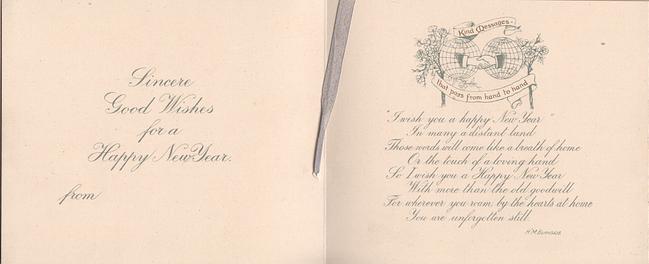 Sincere
Good Wishes
for a
Happy New Year.
from
Kind Messages
that pass from hand to hand
"I wish you a happy New Year"
In many a distant land
Those words will come like a breath of home
Or the touch of a loving hand
So I wish you a Happy New Year
With more than the old goodwill
For wherever you roam, by the hearts at home
You are unforgotten still.
H.M. Burnside